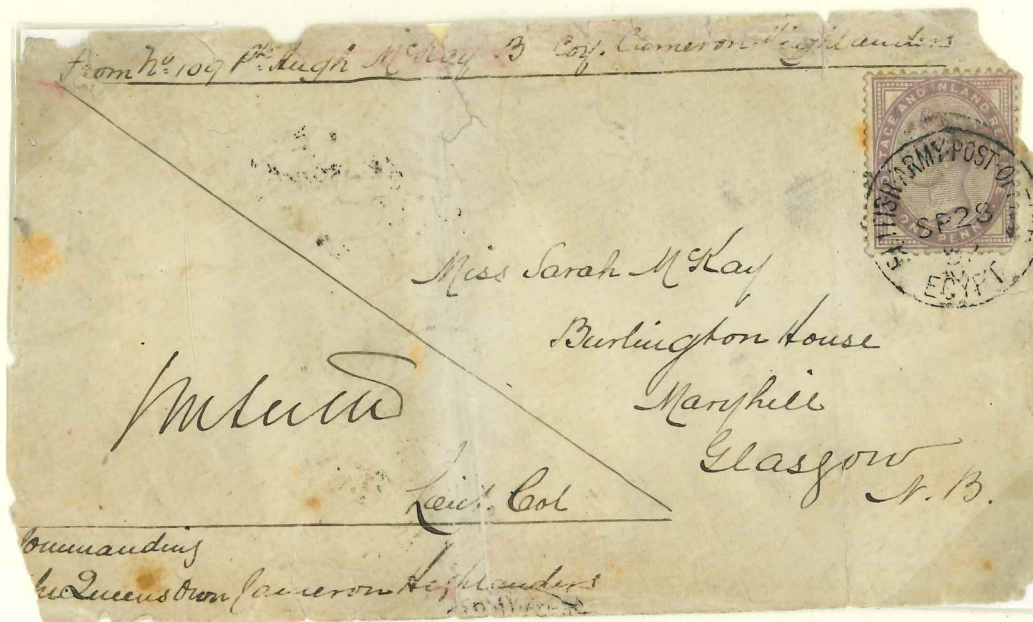 From No. 109 Pte. Hugh McKay B Coy. Cameron Highlanders
POSTAGE AND INLAND RE
ONE PENN
BRITISH ARMY POST OF
SP 28
EGYPT
Miss Sarah McKay
Burlington House
Maryhill
Glasgow
N. B.
Lieut. Col
Commanding
The Queens Own Cameron Highlanders